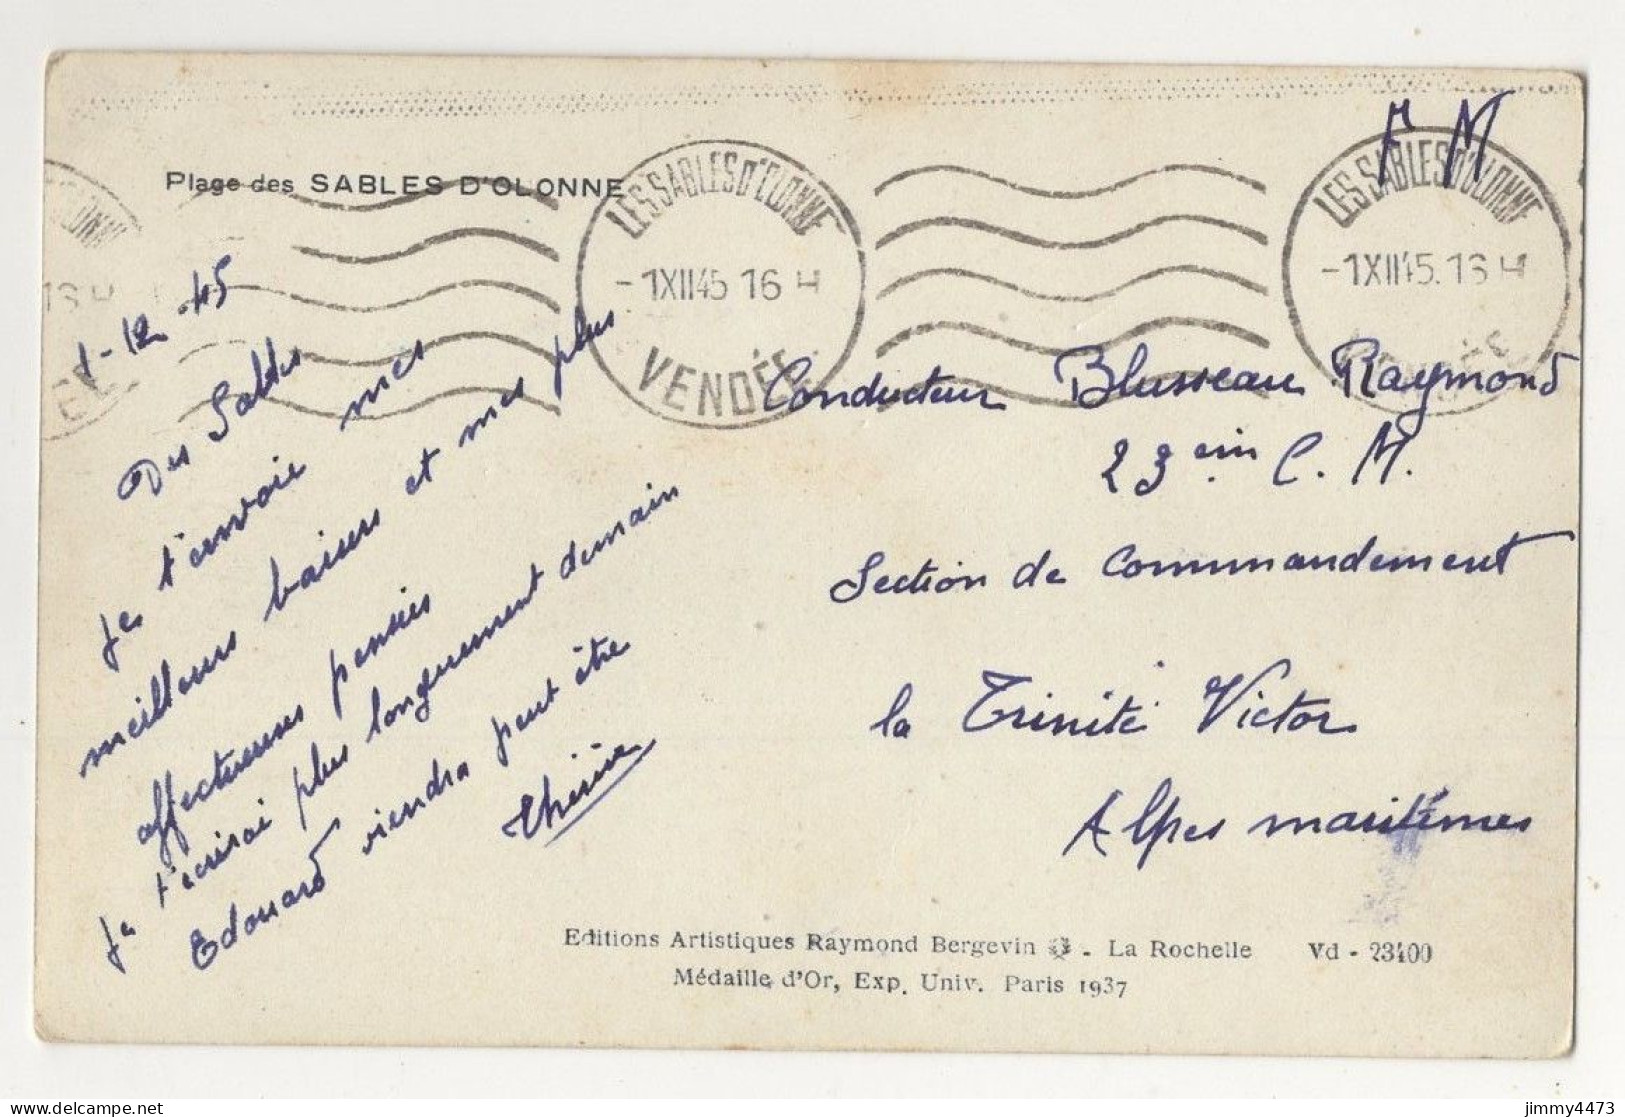 Plage des SABLES D'OLONNE
LES SABLES D'OLONNE
-1XII45 16H
VENDÉE
LES SABLES D'OLONNE
-1XII45. 16H
VENDÉE
F M
1-12-45
Des Sables
Je t'envoie mes
meilleurs baisers et mes plus
affectueuses pensées
Je t'écrirai plus longuement demain
Edouard viendra peut être
Thérèse
Conducteur Blusseau Raymond
23 eim C. M.
Section de Commandement
la Trinité Victor
Alpes maritimes
Editions Artistiques Raymond Bergevin - La Rochelle Vd - 23400
Médaille d'Or, Exp. Univ. Paris 1937
jimmy4473